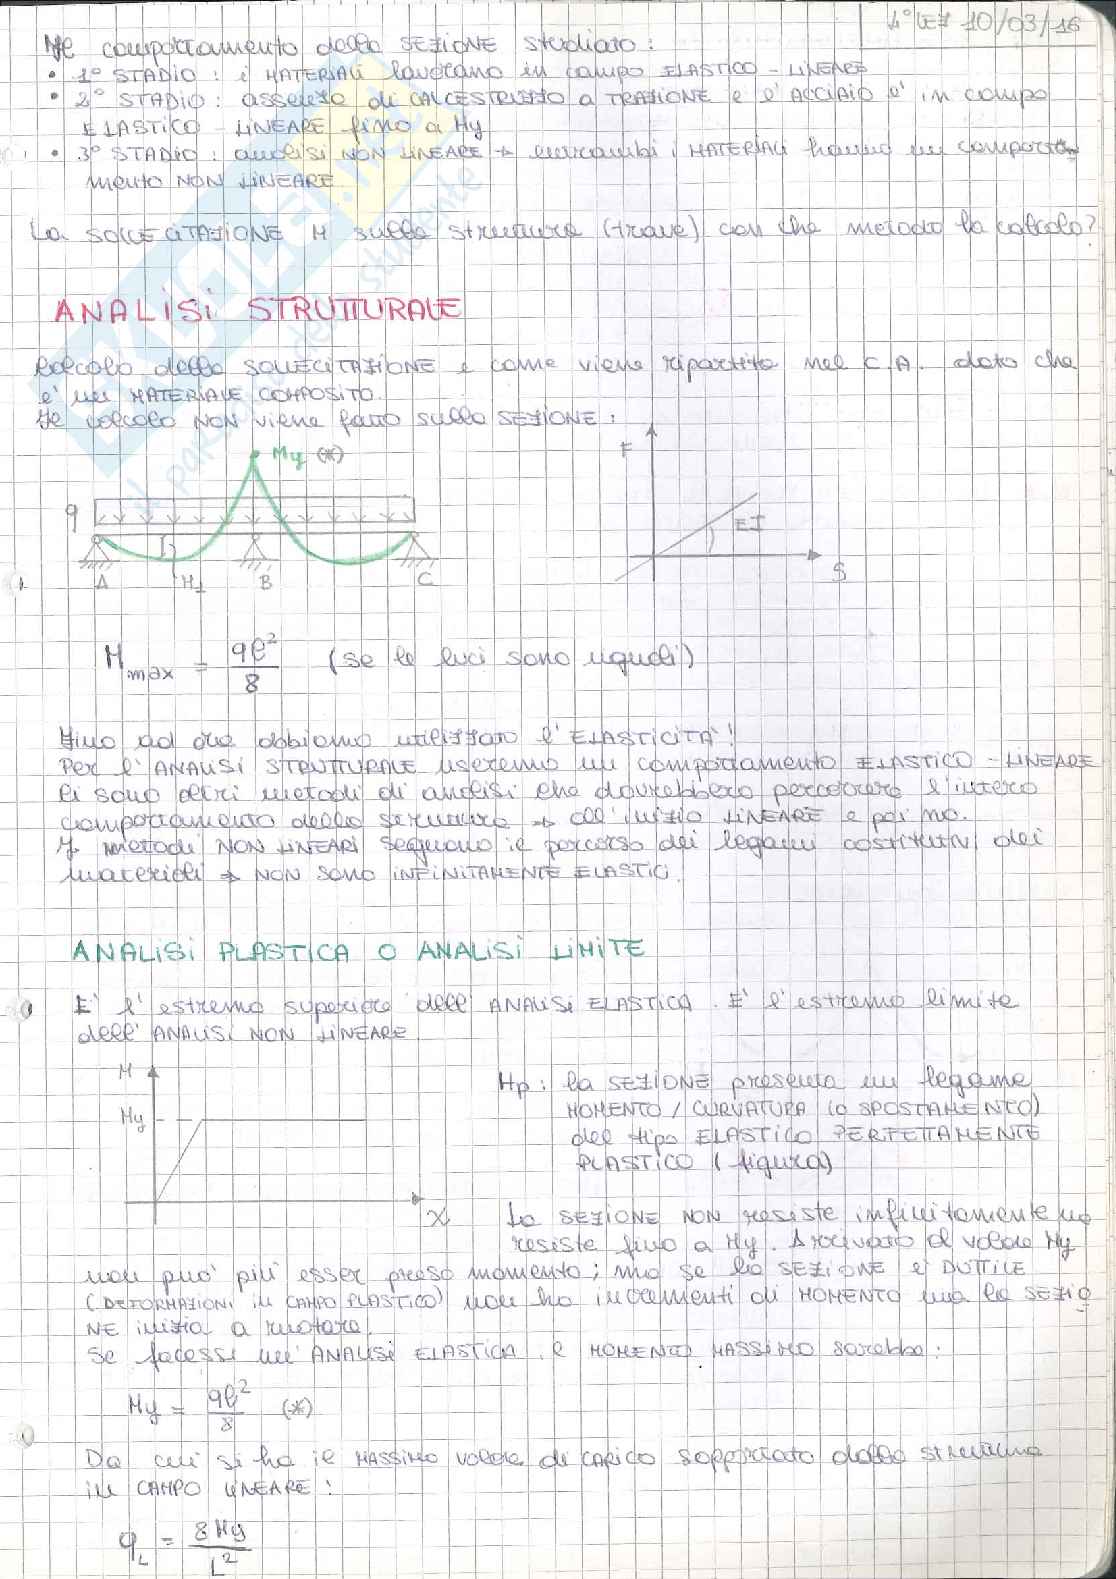 4° LEZ 10/03/16
Il comportamento della SEZIONE studiato:
• 1° STADIO: i MATERIALI lavorano in campo ELASTICO-LINEARE
• 2° STADIO: assenza di CALCESTRUZZO a TRAZIONE e l'ACCIAIO è in campo
ELASTICO-LINEARE fino a My
• 3° STADIO: analisi NON LINEARE → entrambi i MATERIALI hanno un comporta
mento NON LINEARE
La SOLLECITAZIONE M sulla struttura (trave) con che metodo la calcolo?
ANALISI STRUTTURALE
Calcolo della SOLLECITAZIONE e come viene ripartita nel C.A. dato che
e' un MATERIALE COMPOSITO.
Il calcolo NON viene fatto sulla SEZIONE:
My (*)
q
A
M
B
C
F
EI
S
Mmax = ql²/8 (se le luci sono uguali)
Fino ad ora abbiamo utilizzato l'ELASTICITA'!
Per l'ANALISI STRUTTURALE useremo un comportamento ELASTICO-LINEARE
Ci sono altri metodi di analisi che dovrebbero percorrere l'intero
comportamento della struttura → all'inizio LINEARE e poi no.
I metodi NON LINEARI seguono il percorso dei legami costitutivi dei
materiali → NON sono INFINITAMENTE ELASTICI.
ANALISI PLASTICA O ANALISI LIMITE
E' l'estremo superiore dell'ANALISI ELASTICA. E' l'estremo limite
dell'ANALISI NON LINEARE
M
My
X
Hp: la SEZIONE presenta un legame
MOMENTO/CURVATURA (o SPOSTAMENTO)
del tipo ELASTICO PERFETTAMENTE
PLASTICO (figura)
La SEZIONE NON resiste infinitamente ma
resiste fino a My. Arrivato al valore My
non può più esser preso momento; ma se la SEZIONE e' DUTTILE
(DEFORMAZIONI in CAMPO PLASTICO) non ho incrementi di MOMENTO ma la SEZIO
NE inizia a ruotare.
Se facessi un'ANALISI ELASTICA il MOMENTO MASSIMO sarebbe:
My = ql²/8 (*)
Da cui si ha il MASSIMO valore di CARICO sopportato dalla struttura
in CAMPO LINEARE:
qL = 8My/L²